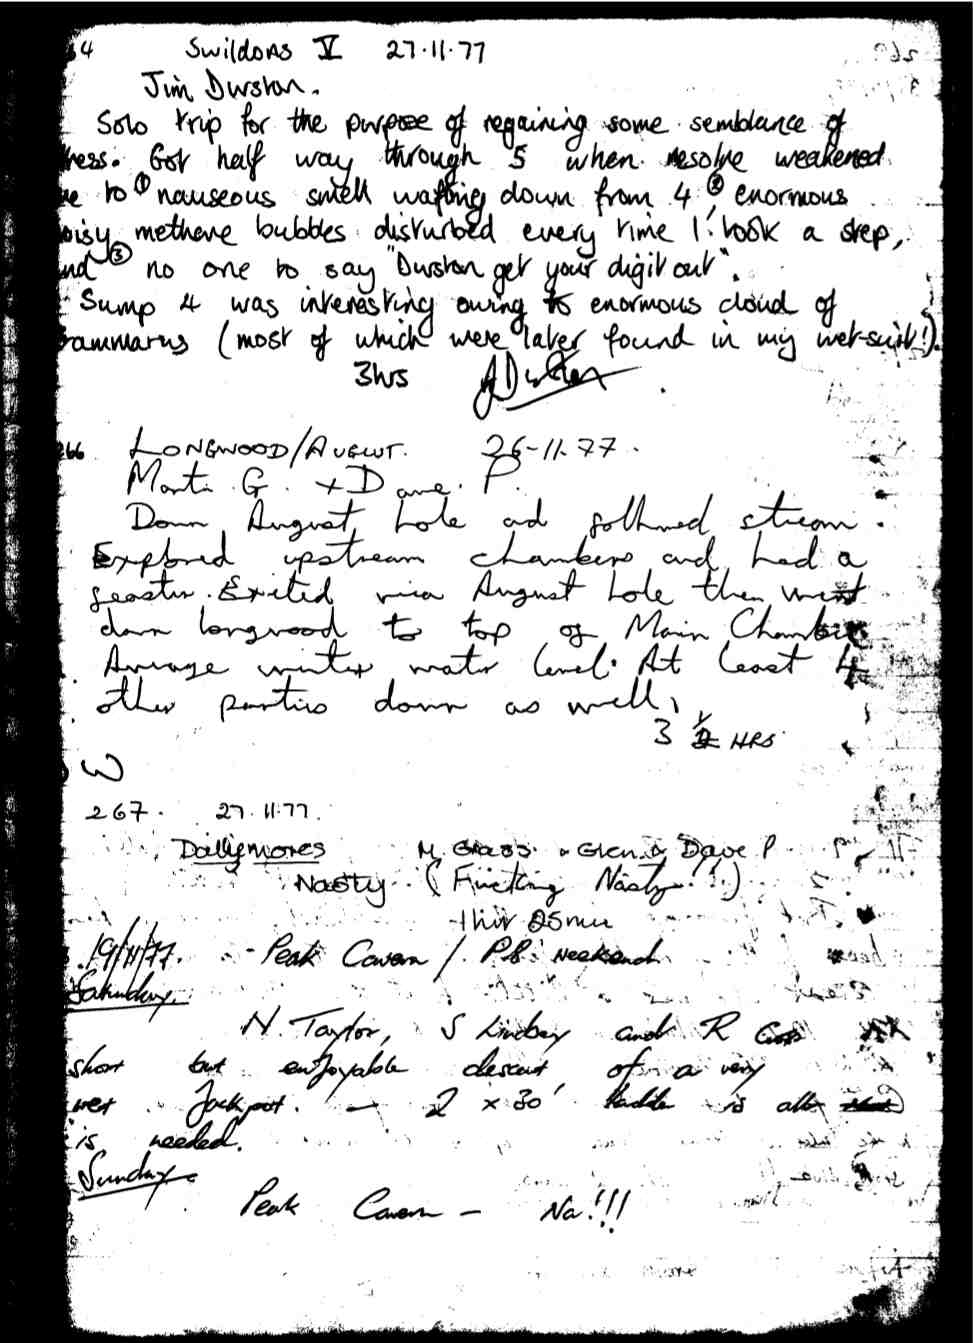 4 Swildons V 27.11.77
Jim Durston.
Solo trip for the purpose of regaining some semblance of
ness. Got half way through 5 when resolve weakened
ue to ① nauseous smell wafting down from 4, ② enormous
oisy methane bubbles disturbed every time I took a step,
nd ③ no one to say "Durston get your digit out".
Sump 4 was interesting owing to enormous cloud of
ammarus (most of which were later found in my wet-suit!).
3hrs J Durston
266 LONGWOOD/AUGUST. 26-11-77.
Martin G. + Dave. P.
Down August Hole and follwed stream.
Explored upstream chambers and had a
. Exited via August hole then went
down longwood to top of Main Chamber
Average winter water level. At least 4
other parties down as well,
3 ½ HRS.
W
267. 27.11.77.
Dallymores M. Grass. Glen & Dave P
Nasty (Fucking Nasty!!!)
1 hr 25 min
19/11/77. - Peak Cavern / P8. Weekend
Saturday.
N. Taylor, S Lindsay and R
short but enjoyable descent of a very
wet Jackpot. — 2 x 30' ladder is all
is needed.
Sunday
Peak Cavern - Na!!!